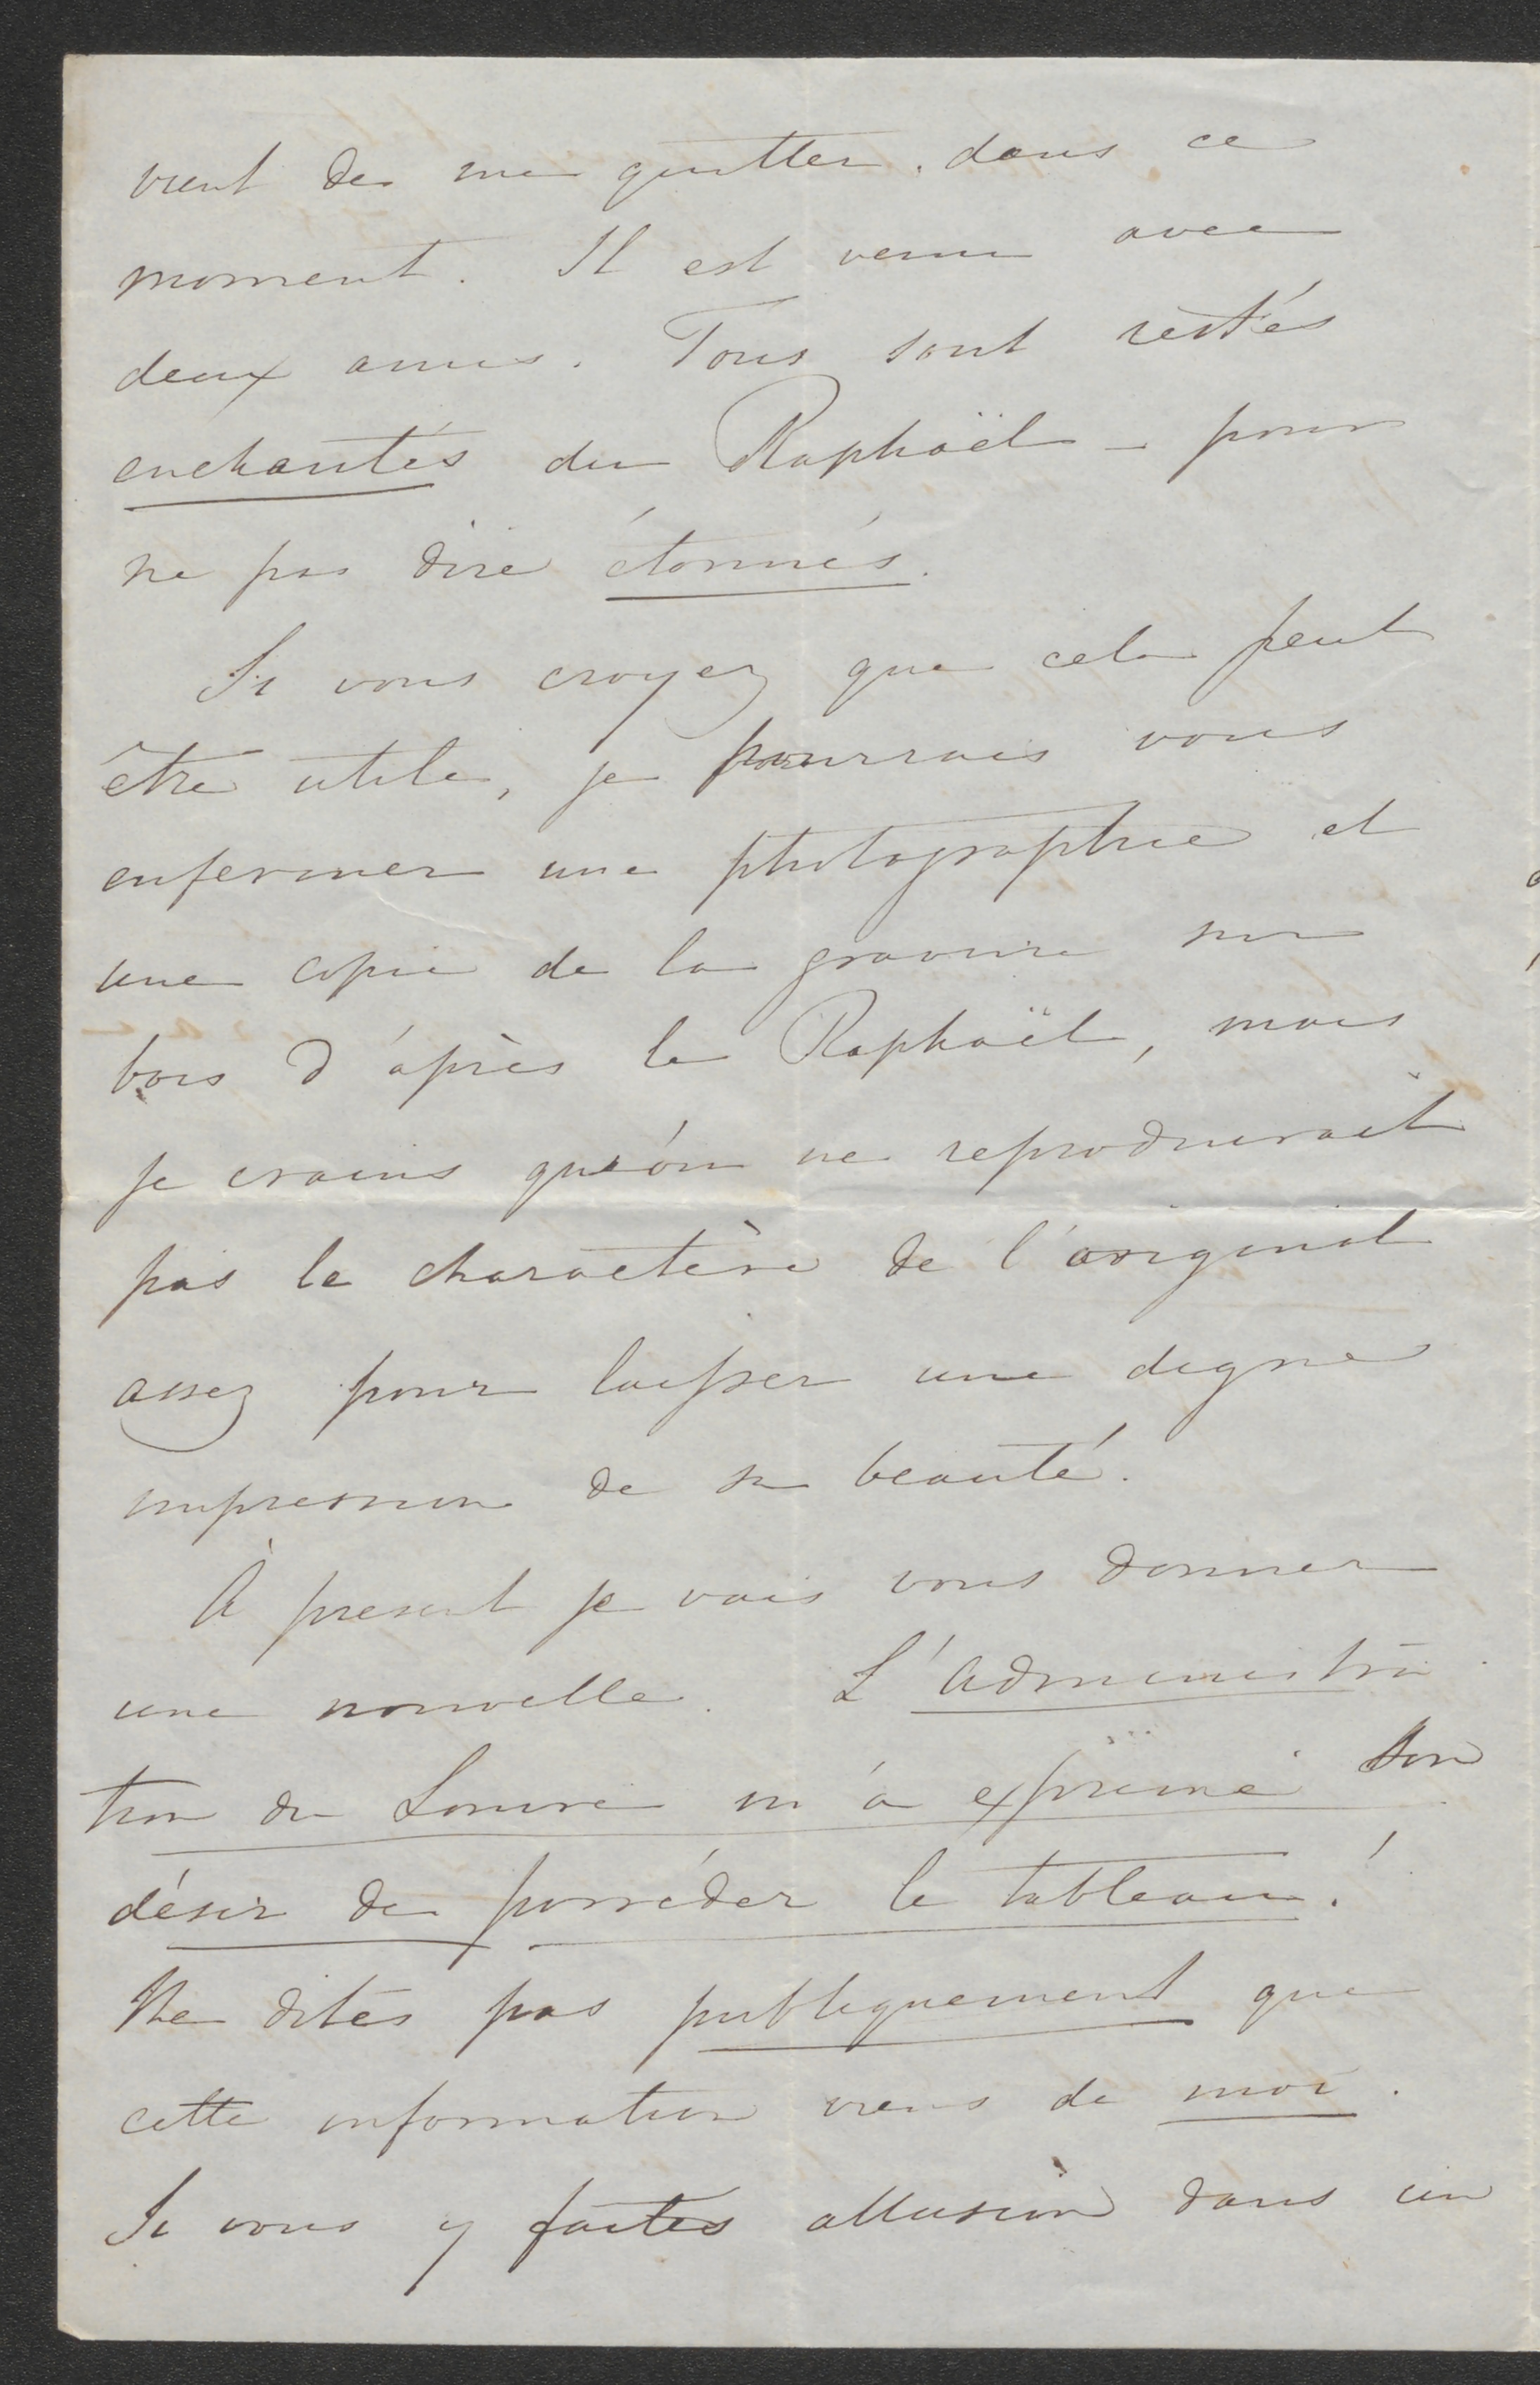 vient de me quitter, dans ce
moment. Il est venu avec
deux amis. Tous sont restés
enchantés du Raphaël – pour
ne pas dire étonnés.
Si vous croyez que cela peut
être utile, je pourrais vous
enfermer une photographie et
une copie de la gravure sur
bois d'après le Raphaël, mais
je crains qu'on ne reproduirait
pas le charactère de l'original
assez pour laisser une digne
impression de sa beauté.
À present je vais vous donner
une nouvelle. L'Administra-
tion du Louvre m'a exprimé son
désir de posséder le tableau!
Ne dites pas publiquement que
cette information viens de moi.
Si vous y faites allusion dans un